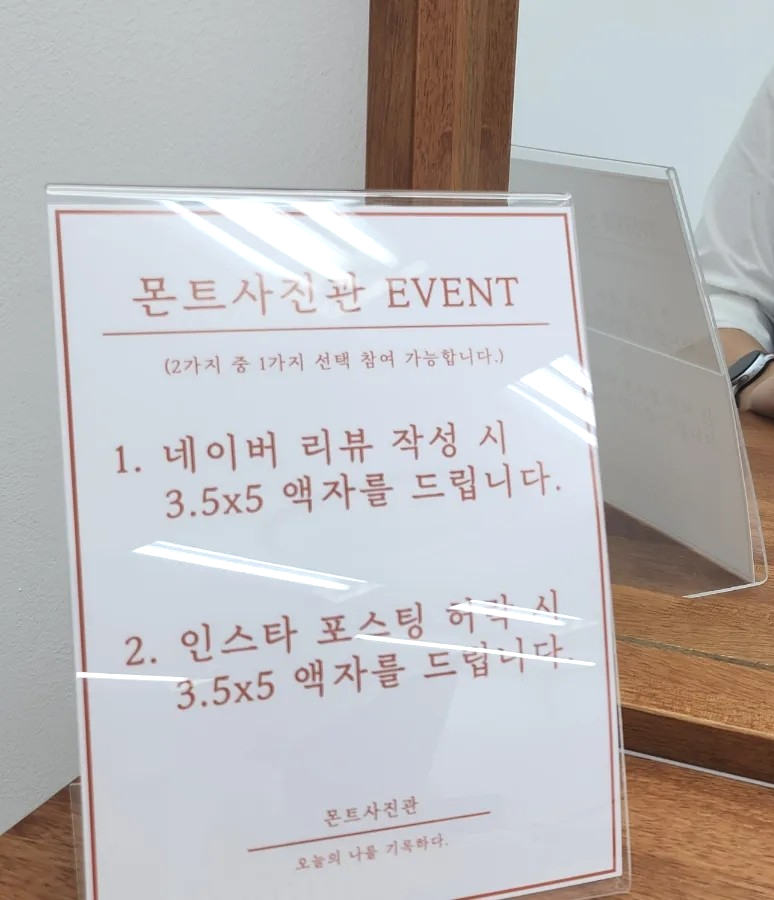 몬트사진관 EVENT
(2가지 중 1가지 선택 참여 가능합니다.)
1. 네이버 리뷰 작성 시
3.5x5 액자를 드립니다.
2. 인스타 포스팅 허락 시
3.5x5 액자를 드립니다.
몬트사진관
오늘의 나를 기록하다.